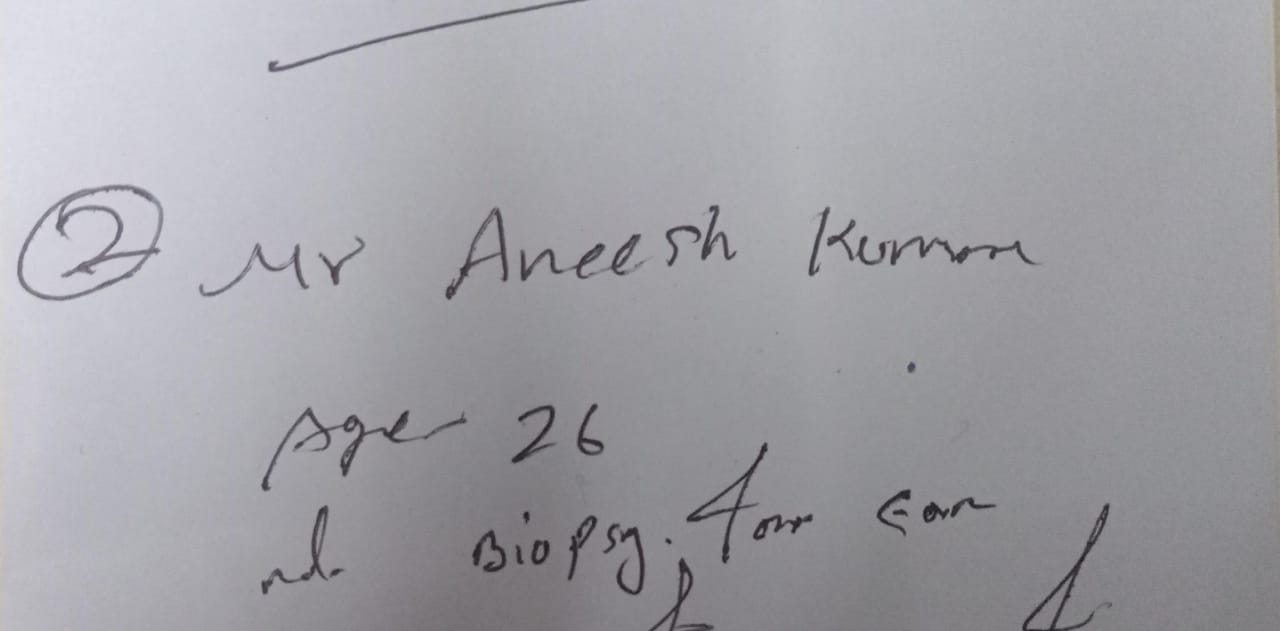 2 Mr Aneesh Kumar
Age 26
Biopsy. from Ear